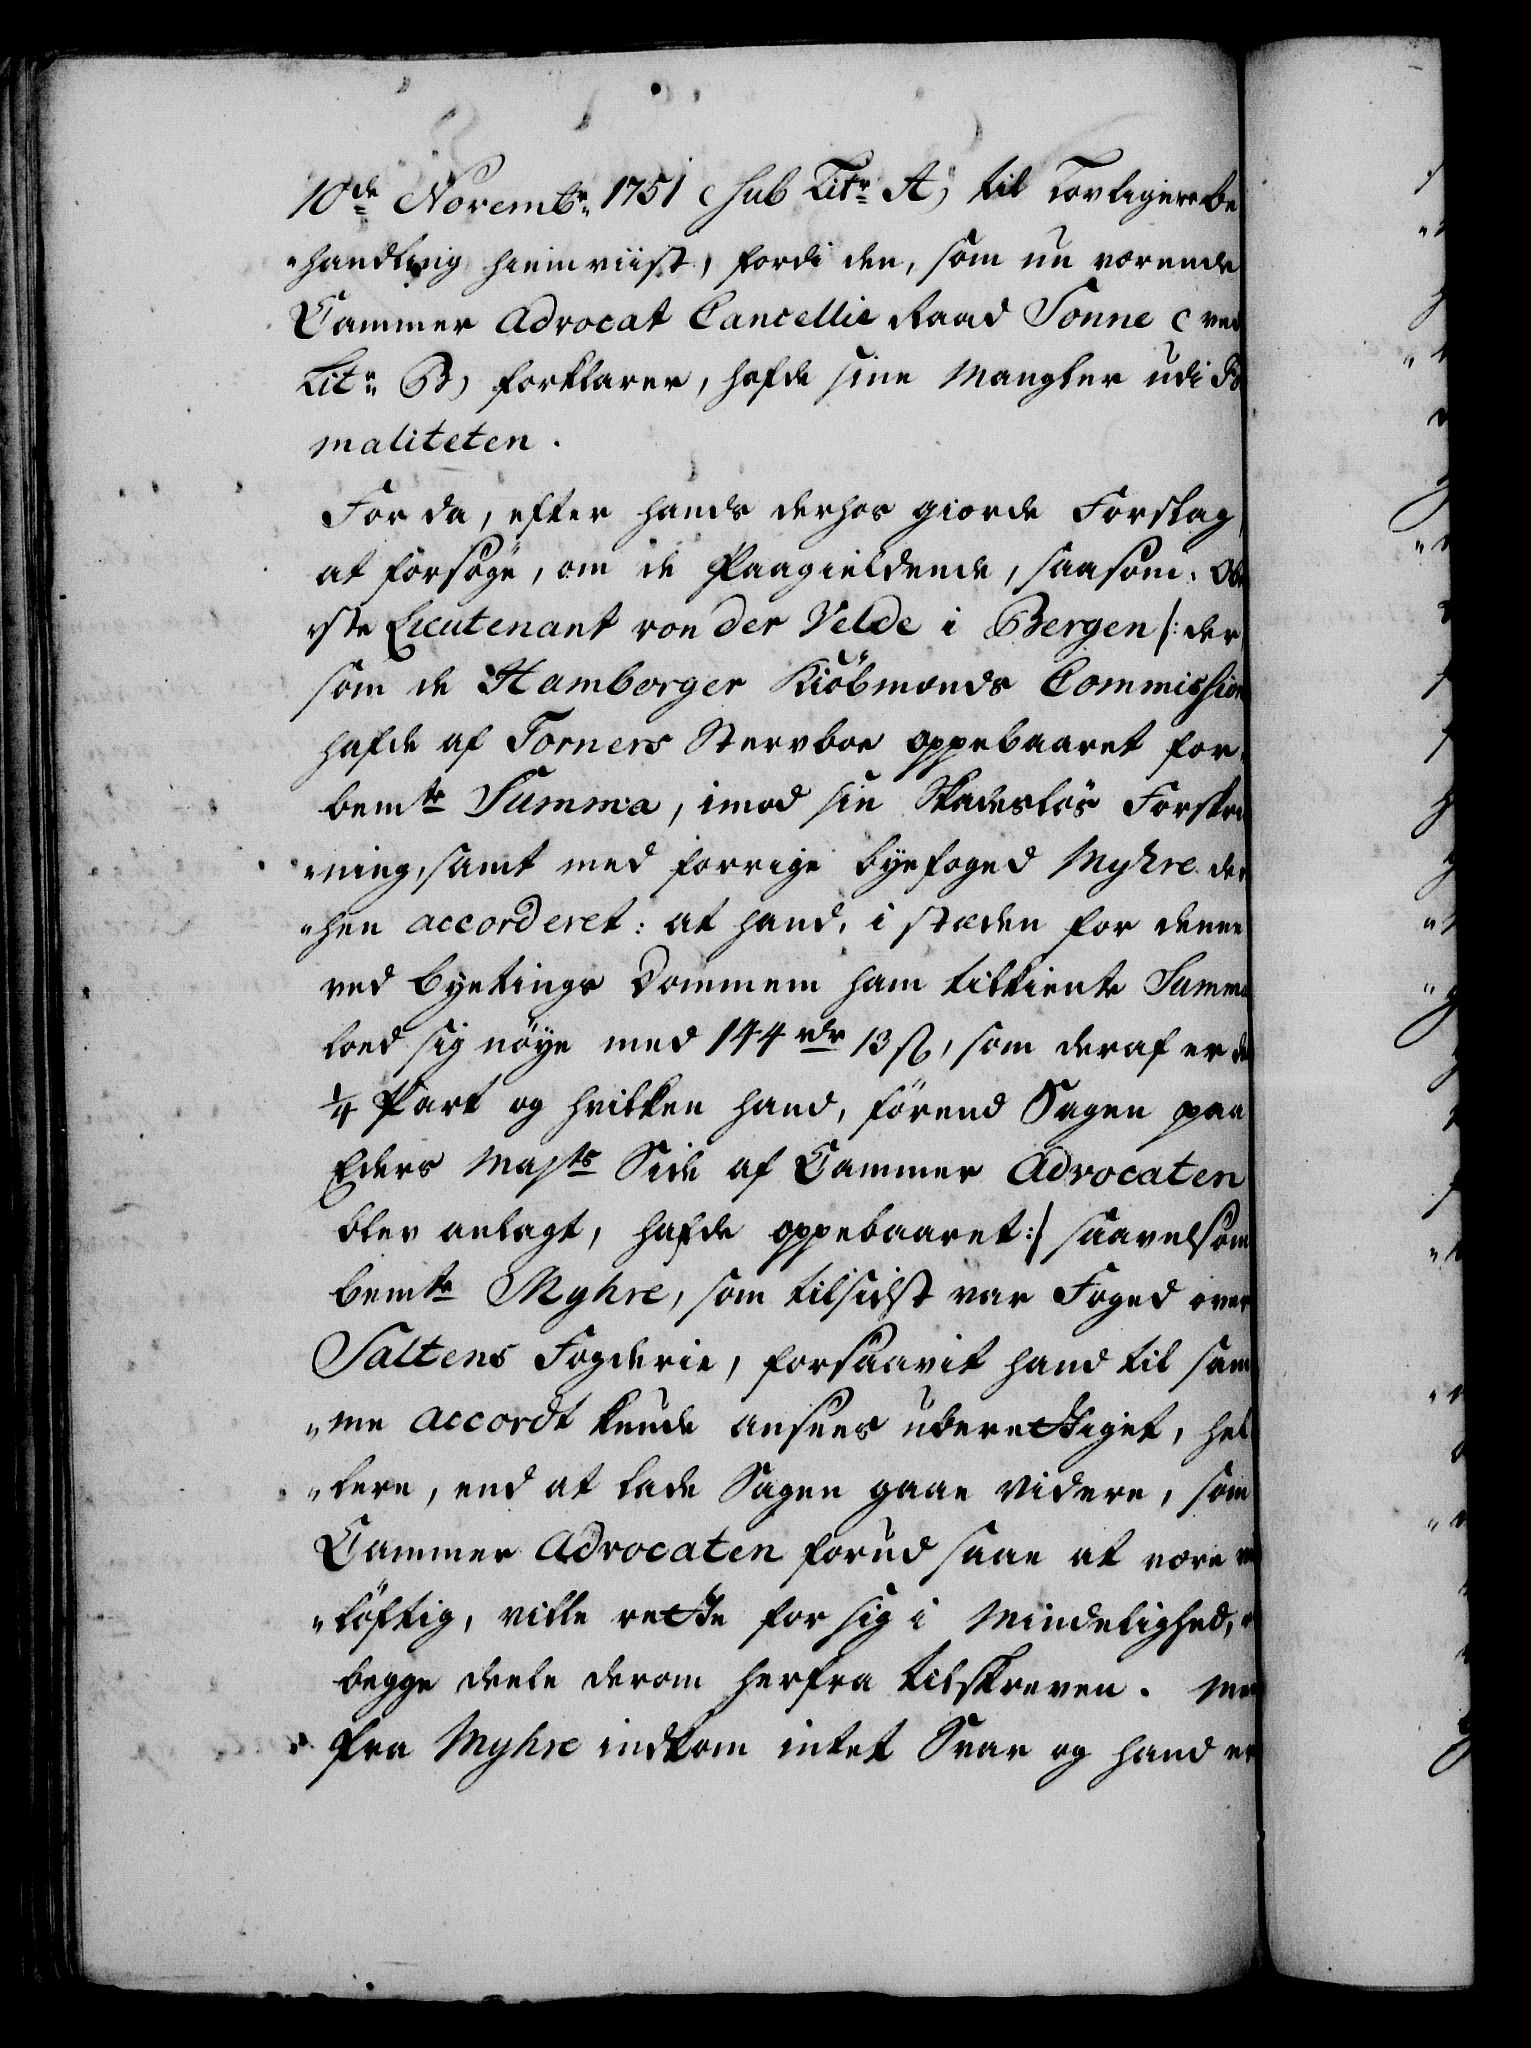 10de Novembr: 1751 (sub Litr: A) til Lovligere be
"handling hiemviist, fordi den, som nu værende
Cammer Advocat Cancellie Raad Sonne (ved
Litr: B) forklarer, hafde sine Mangler udi Fo
maliteten.
For da, efter hands derhos giorde Forslag
at forsøge, om de Paagieldende, saasom: Ob
rste Lieutenant von der Velde i Bergen /: der
som de Hamborger Kiöbmænds Commission
hafde af Torners Sterboe oppebaaret for"
bemte Summa, imod sin Skadeslös Forskri
"ning, samt med forrige byefoged Myhre der
"hen accorderet: at hand, i stæden for denne
ved Byetings Dommem ham tilkiente Summa
loed sig nöye med 144 rdr 13 s, som deraf er de
1/4 Part og hvilken hand, förend Sagen paa
Eders Majts Side af Cammer Advocaten
blev anlagt, hafde oppebaaret :/ saavelsom
bemte Myhre, som tilsidst var Foged over
Saltens Fogderie, forsaavit hand til sam
"me accordt kunde ansees uberettiget, hel
"lere, end at lade Sagen gaae videre, som
Cammer Advocaten forud saae at være
"löftig, ville rette for sig i Mindelighed,
begge deele derom herfra tilskreven. Men
fra Myhre indkom intet Svar og hand er